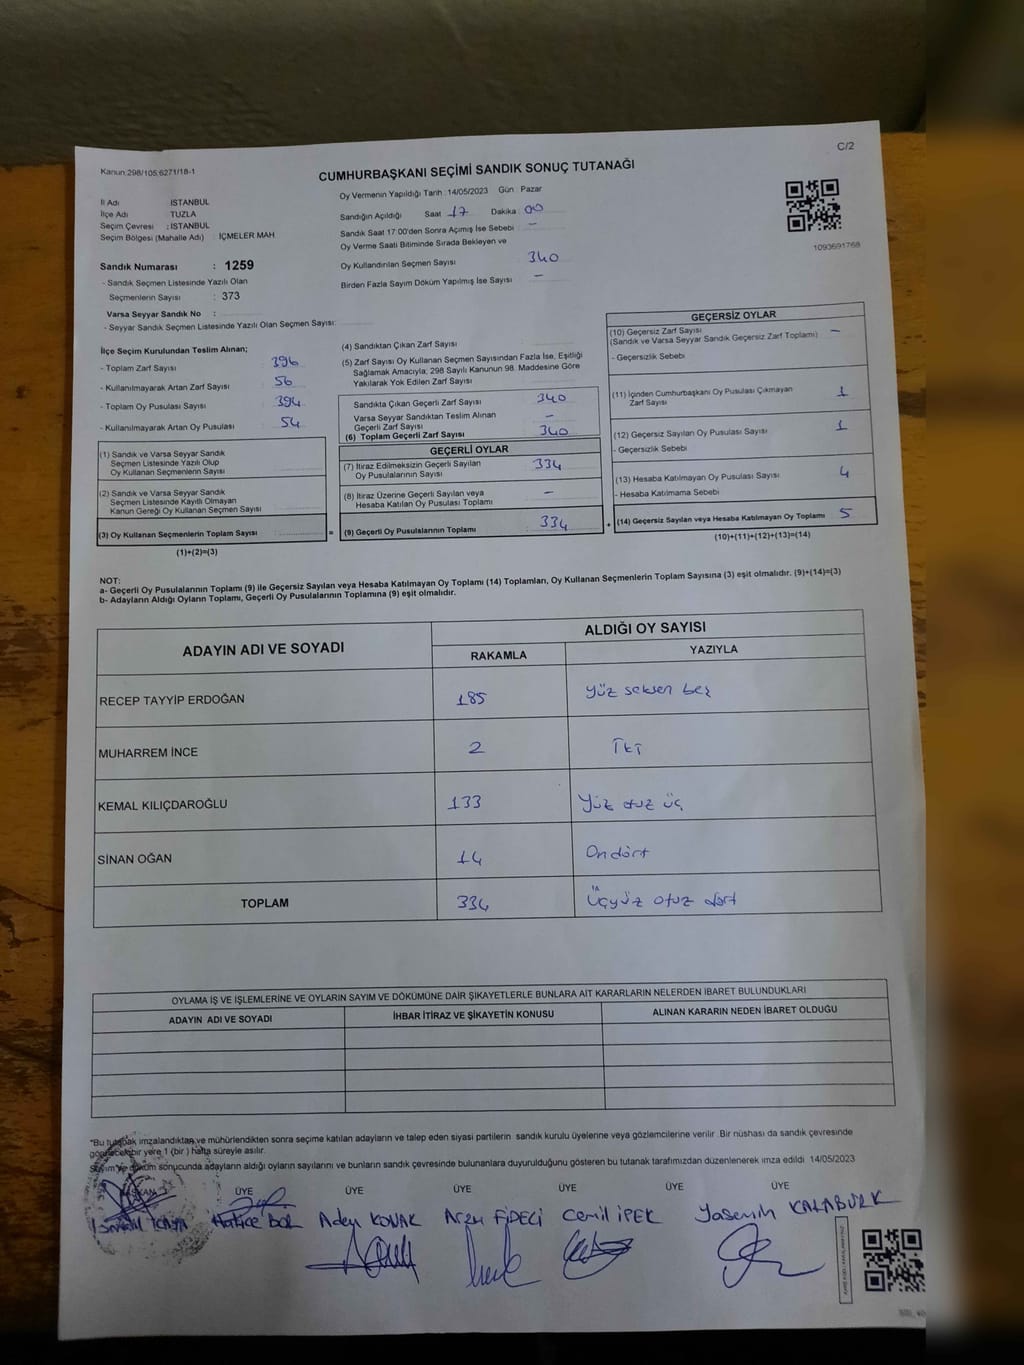 C/2
Kanun:298/105;6271/18-1
CUMHURBAŞKANI SEÇİMİ SANDIK SONUÇ TUTANAĞI
İl Adı : İSTANBUL
İlçe Adı : TUZLA
Seçim Çevresi : İSTANBUL
Seçim Bölgesi (Mahalle Adı) : İÇMELER MAH
Oy Vermenin Yapıldığı Tarih : 14/05/2023 Gün : Pazar
Sandığın Açıldığı Saat 17 Dakika 00
Sandık Saat 17:00'den Sonra Açılmış İse Sebebi : -
Oy Verme Saati Bitiminde Sırada Bekleyen ve
Oy Kullandırılan Seçmen Sayısı 340
Birden Fazla Sayım Döküm Yapılmış İse Sayısı -
1093691768
Sandık Numarası : 1259
- Sandık Seçmen Listesinde Yazılı Olan
Seçmenlerin Sayısı : 373
Varsa Seyyar Sandık No :
- Seyyar Sandık Seçmen Listesinde Yazılı Olan Seçmen Sayısı:
İlçe Seçim Kurulundan Teslim Alınan;
- Toplam Zarf Sayısı 396
- Kullanılmayarak Artan Zarf Sayısı 56
- Toplam Oy Pusulası Sayısı 394
- Kullanılmayarak Artan Oy Pusulası 54
(1) Sandık ve Varsa Seyyar Sandık
Seçmen Listesinde Yazılı Olup
Oy Kullanan Seçmenlerin Sayısı
(2) Sandık ve Varsa Seyyar Sandık
Seçmen Listesinde Kayıtlı Olmayan
Kanun Gereği Oy Kullanan Seçmen Sayısı
(3) Oy Kullanan Seçmenlerin Toplam Sayısı =
(1)+(2)=(3)
(4) Sandıktan Çıkan Zarf Sayısı
(5) Zarf Sayısı Oy Kullanan Seçmen Sayısından Fazla İse, Eşitliği
Sağlamak Amacıyla; 298 Sayılı Kanunun 98. Maddesine Göre
Yakılarak Yok Edilen Zarf Sayısı
Sandıkta Çıkan Geçerli Zarf Sayısı 340
Varsa Seyyar Sandıktan Teslim Alınan
Geçerli Zarf Sayısı -
(6) Toplam Geçerli Zarf Sayısı 340
GEÇERLİ OYLAR
(7) İtiraz Edilmeksizin Geçerli Sayılan
Oy Pusulalarının Sayısı 334
(8) İtiraz Üzerine Geçerli Sayılan veya
Hesaba Katılan Oy Pusulası Toplamı -
(9) Geçerli Oy Pusulalarının Toplamı 334 +
GEÇERSİZ OYLAR
(10) Geçersiz Zarf Sayısı -
(Sandık ve Varsa Seyyar Sandık Geçersiz Zarf Toplamı)
- Geçersizlik Sebebi
(11) İçinden Cumhurbaşkanı Oy Pusulası Çıkmayan
Zarf Sayısı 1
(12) Geçersiz Sayılan Oy Pusulası Sayısı 1
- Geçersizlik Sebebi
(13) Hesaba Katılmayan Oy Pusulası Sayısı 4
- Hesaba Katılmama Sebebi
(14) Geçersiz Sayılan veya Hesaba Katılmayan Oy Toplamı 5
(10)+(11)+(12)+(13)=(14)
NOT:
a- Geçerli Oy Pusulalarının Toplamı (9) ile Geçersiz Sayılan veya Hesaba Katılmayan Oy Toplamı (14) Toplamları, Oy Kullanan Seçmenlerin Toplam Sayısına (3) eşit olmalıdır. (9)+(14)=(3)
b- Adayların Aldığı Oyların Toplamı, Geçerli Oy Pusulalarının Toplamına (9) eşit olmalıdır.
ADAYIN ADI VE SOYADI
ALDIĞI OY SAYISI
RAKAMLA YAZIYLA
RECEP TAYYİP ERDOĞAN 185 Yüz seksen beş
MUHARREM İNCE 2 İki
KEMAL KILIÇDAROĞLU 133 Yüz otuz üç
SİNAN OĞAN 14 Ondört
TOPLAM 334 Üçyüz otuz dört
OYLAMA İŞ VE İŞLEMLERİNE VE OYLARIN SAYIM VE DÖKÜMÜNE DAİR ŞİKAYETLERLE BUNLARA AİT KARARLARIN NELERDEN İBARET BULUNDUKLARI
ADAYIN ADI VE SOYADI İHBAR İTİRAZ VE ŞİKAYETİN KONUSU ALINAN KARARIN NEDEN İBARET OLDUĞU
"Bu tutanak imzalandıktan ve mühürlendikten sonra seçime katılan adayların ve talep eden siyasi partilerin sandık kurulu üyelerine veya gözlemcilerine verilir. Bir nüshası da sandık çevresinde
görülebilir bir yere 1 (bir) hafta süreyle asılır.
Sayım ve döküm sonucunda adayların aldığı oyların sayılarını ve bunların sandık çevresinde bulunanlara duyurulduğunu gösteren bu tutanak tarafımızdan düzenlenerek imza edildi. 14/05/2023
BAŞKAN ÜYE ÜYE ÜYE ÜYE ÜYE ÜYE
İsmail KAYA Hatice BAL Adem KONAK Arzu FİDECİ Cemil İPEK Yasemin KALABURK